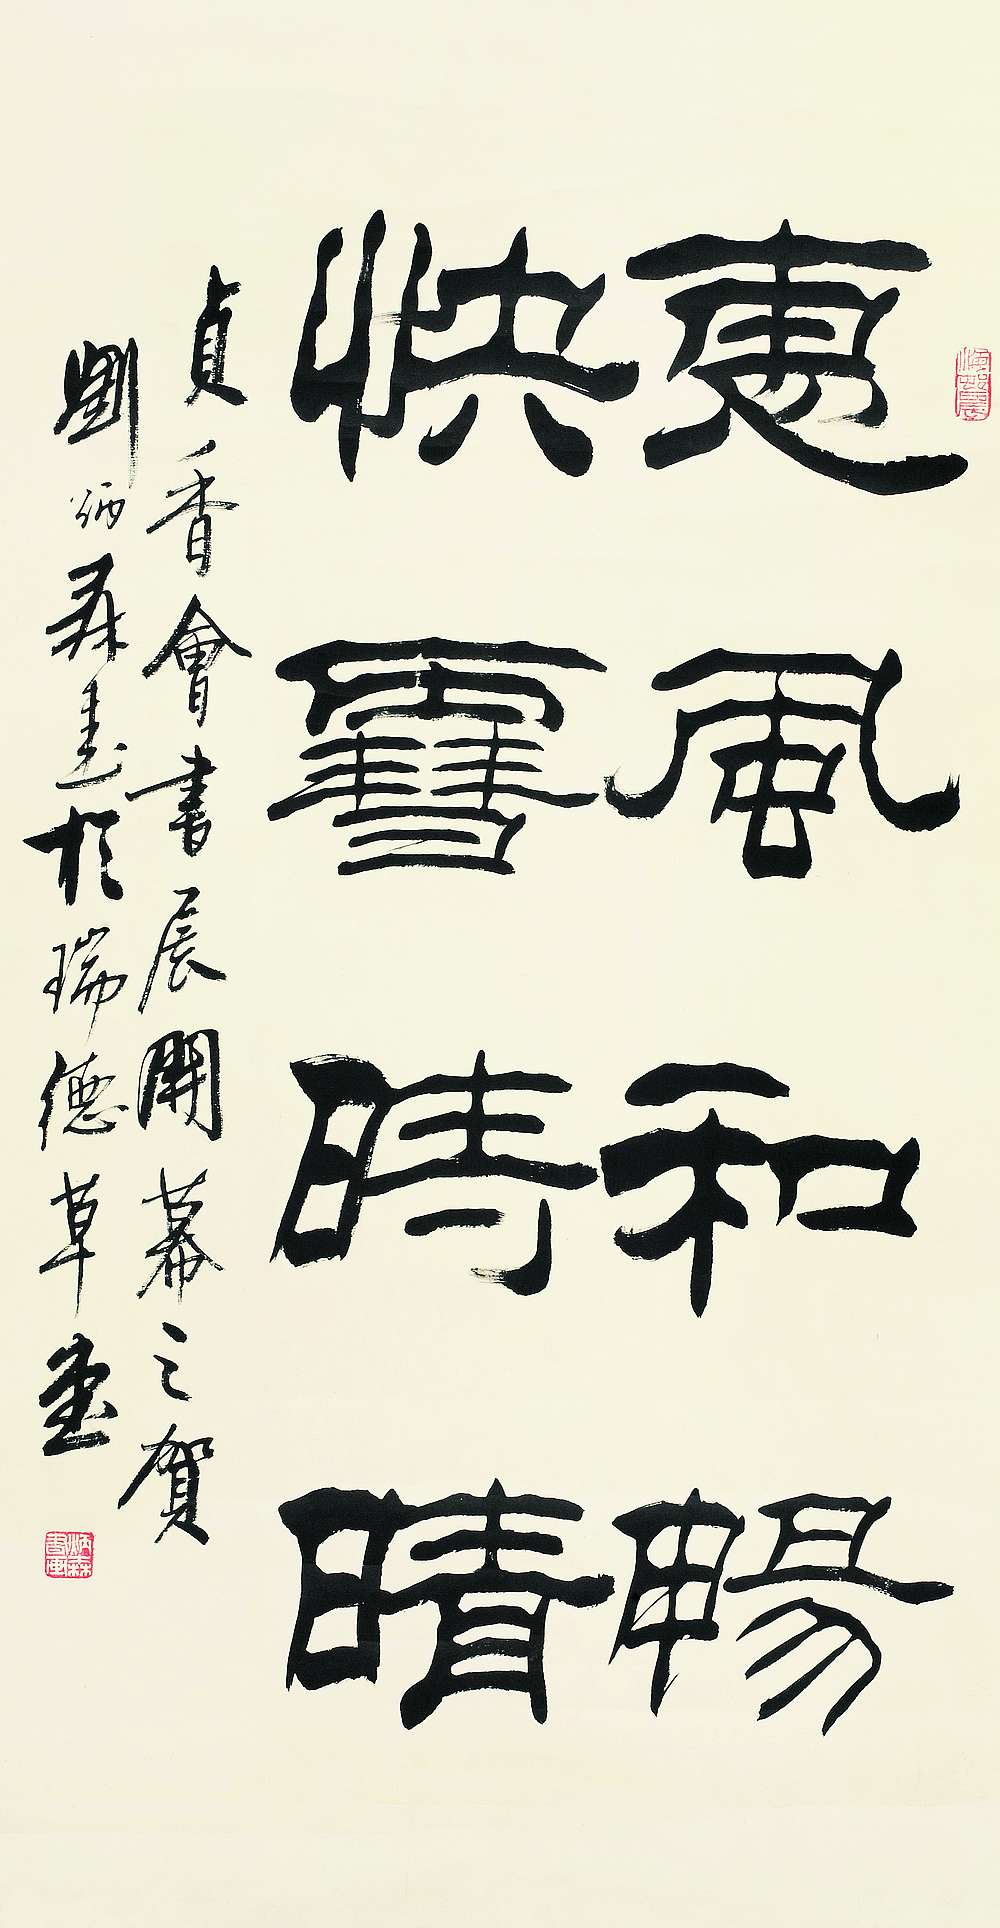 惠風和暢
快雪時晴
貞香會書展開幕之賀
劉炳森書於瑞德草堂
炳森書画